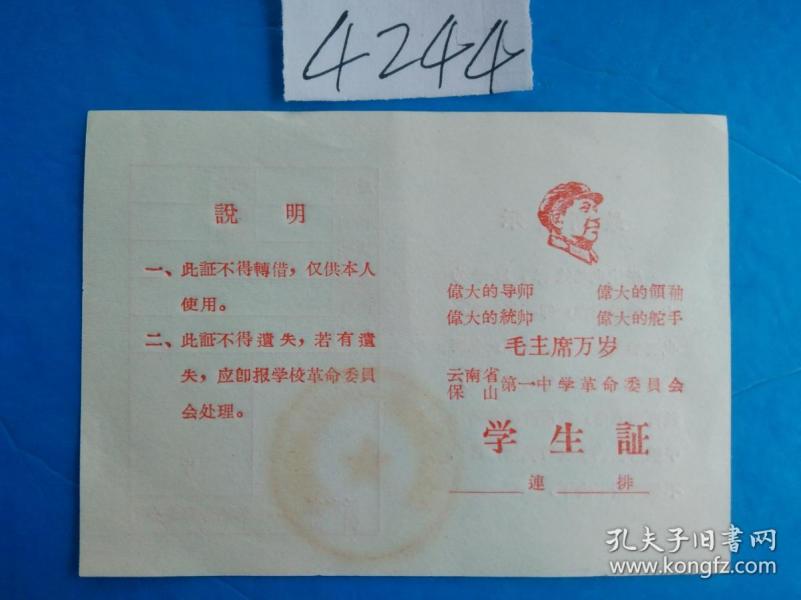 4244
說 明
一、此証不得轉借，仅供本人
使用。
二、此証不得遺失，若有遺
失，应卽报学校革命委員
会处理。
偉大的导师 偉大的領袖
偉大的統帅 偉大的舵手
毛主席万岁
云南省
保山 第一中学革命委員会
学生証
連 排
孔夫子旧書网
www.kongfz.com